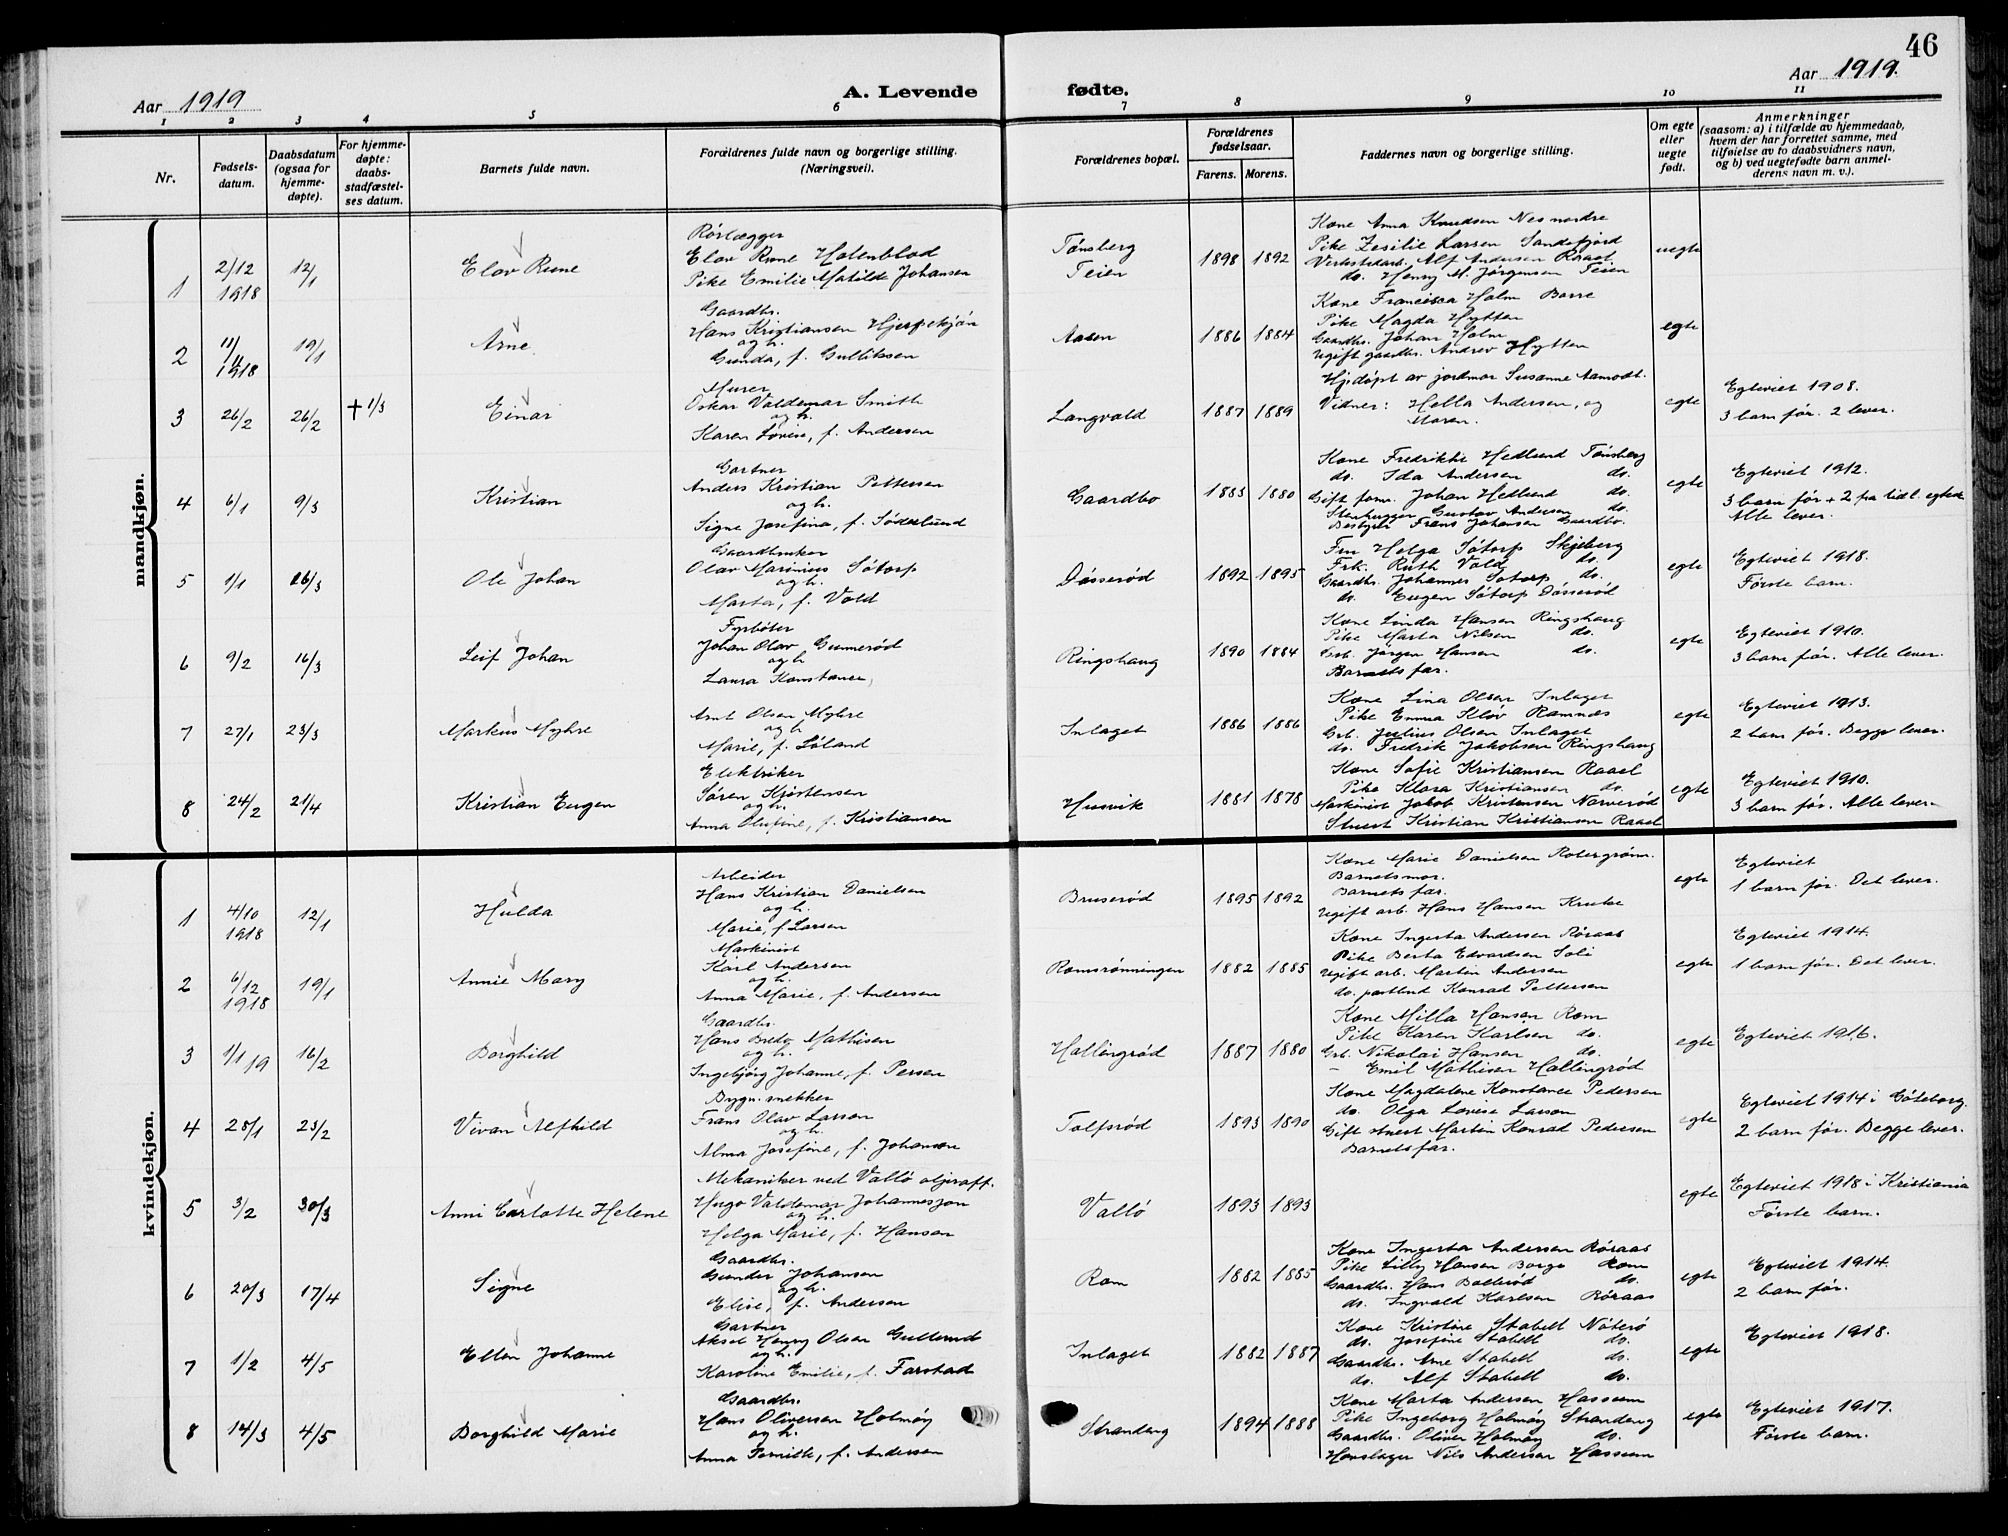 46
Aar 1919
A. Levende
fødte.
Aar 1919.
1 2 3 4 5 6 7 8 9 10 11
Nr.
Fødsels-
datum.
Daabsdatum
(ogsaa for
hjemme-
døpte).
For hjemme-
døpte:
daabs-
stadfæstel-
ses datum.
Barnets fulde navn.
Forældrenes fulde navn og borgerlige stilling.
(Næringsvei).
Forældrenes bopæl.
Forældrenes
fødselsaar.
Farens. Morens.
Faddernes navn og borgerlige stilling.
Om egte
eller
uegte
født.
Anmerkninger
(saasom: a) i tilfælde av hjemmedaab,
hvem der har forrettet samme, med
tilføielse av to daabsvidners navn,
og b) ved uegtefødte barn anmel-
derens navn m. v.).
mandkjøn.
1
2/12
1918
12/1
Elov Rune
Rørlægger
Elov Rune Holenblad
Pike Emilie Matilde Johansen
Tønsberg
Teien
1898 1892
Kone Anna Knudsen Nes nordre
Pike Zesilie Larsen Sandefjord
Verkstedarb. Alf Andersen Raael
do. Henry M. Jørgensen Teien
uegte
2
11/11
1918
19/1
Arne
Gaardbr.
Hans Kristiansen Hjerpekjøn
og h.
Gunda, f. Gulliksen
Aasen
1886 1884
Kone Francisca Holm Borre
Pike Magda Hytten
Gaardbr. Johan Holm
Ugift gaardbr. Andrew Hytten
egte
3
26/2
26/2
✝ 1/3
Einar
Murer
Oskar Valdemar Smith
og h.
Karen Lovise, f. Andersen
Langvald
1887 1889
Hj.døpt av jordmor Susanne Aamodt.
Vidner: Hella Andersen, og
Maren.
egte
Egteviet 1908.
3 barn før. 2 lever.
4
6/1
9/3
Kristian
Gartner
Anders Kristian Pettersen
og h.
Signe Josefina, f. Søderlund
Gaardbo
1883 1880
Kone Fredrikke Hedlund Tønsberg
do. Ida Andersen do.
Gift form. Johan Hedlund do.
Stenhugger Gustav Andersen do.
Bestyrer Frans Johansen Gaardbo.
egte
Egteviet 1912.
3 barn før + 2 fra tidl. egtesk.
Alle lever.
5
1/1
16/3
Ole Johan
Gaardbruker
Olav Marinius Søtorp
og h.
Marta, f. Vold
Døsserød
1892 1895
Fru Helga Søtorp Skjeberg
Frk. Ruth Vold do.
Gaardbr. Johannes Søtorp do.
do. Eugen Søtorp Døsserød
egte
Egteviet 1918.
Første barn.
6
9/2
16/3
Leif Johan
Fyrbøter
Johan Olav Gunnerød
og h.
Laura Konstance,
Ringshaug
1890 1884
Kone Linda Hansen Ringshaug
Pike Marta Nilsen do.
Grb. Jørgen Hansen do.
Barnets far.
egte
Egteviet 1910.
3 barn før. Alle lever.
7
27/1
23/3
Markus Myhre
Arnt Olsen Myhre
og h.
Marie, f. Løland
Inlaget
1886 1886
Kone Lina Olsen Inlaget
Pike Emma Kløv Ramnæs
Grb. Julius Olsen Inlaget
do. Fredrik Jakobsen Ringshaug
egte
Egteviet 1913.
2 barn før. Begge lever.
8
24/2
21/4
Kristian Eugen
Elektriker
Søren Kristensen
og h.
Anna Olufine, f. Kristiansen
Husvik
1881 1878
Kone Sofie Kristiansen Raael
Pike Klara Kristiansen do.
Maskinist Jakob Kristensen Narverød
Stuert Kristian Kristiansen Raael
egte
Egteviet 1910.
3 barn før. Alle lever.
kvindekjøn.
1
4/10
1918
12/1
Hulda
Arbeider
Hans Kristian Danielsen
og h.
Marie, f. Larsen
Bruserød
1895 1892
Kone Marie Danielsen Robergrønn.
Barnets mor.
Barnets far.
Ugift arb. Hans Hansen Kruke
egte
Egteviet
1 barn før. Det lever.
2
6/12
1918
19/1
Annie Mary
Maskinist
Karl Andersen
og h.
Anna Marie, f. Andersen
Romsrønningen
1882 1885
Kone Ingerta Andersen Røraas
Pike Berta Edvardsen Soli
Ugift arb. Martin Andersen
do. Konrad Pettersen
egte
Egteviet 1914.
1 barn før. Det lever.
3
1/1 19
16/2
Borghild
Gaardbr.
Hans Bredo Mathisen
og h.
Ingebjørg Johanne, f. Persen
Hallingrød
1887 1880
Kone Milla Hansen Rom
Pike Karen Karlsen do.
Grb. Nikolai Hansen do.
– Emil Mathisen Hallingrød
egte
Egteviet 1916.
4
28/1
23/2
Vivan Alfhild
Bygn. snekker
Frans Olav Larsen
og h.
Alma Josefine, f. Johansen
Tolfsrød
1893 1890
Kone Magdalene Konstance Pedersen
do. Olga Lovise Larsen
Gift stuert Martin Konrad Pedersen
Barnets far.
egte
Egteviet 1914 i Gøteborg.
2 barn før. Begge lever.
5
3/2
30/3
Anni Carlotte Helene
Mekaniker ved Vallø oljeraff.
Hugo Valdemar Johannesson
og h.
Helga Marie, f. Hansen
Vallø
1893 1893
egte
Egteviet 1918 i Kristiania
Første barn.
6
20/3
17/4
Signe
Gaardbr.
Gunder Johansen
og h.
Elise, f. Andersen
Rom
1882 1885
Kone Ingerta Andersen Røraas
Pike Lilly Hansen Borge Rom
Gaardbr. Hans Bollerød do.
do. Ingvald Karlsen Røraas
egte
Egteviet 1914.
2 barn før.
7
1/2
4/5
Ellen Johanne
Gartner
Aksel Henry Olsen Gullerud
og h.
Karoline Emilie, f. Farstad
Inlaget
1882 1887
Kone Kristine Stabell Nøterø
do. Josefine Stabell do.
Gaardbr. Arne Stabell do.
do. Alf Stabell do.
egte
Egteviet 1918.
8
14/3
4/5
Borghild Marie
Gaardbr.
Hans Oliversen Holmøy
og h.
Anna Tomilde, f. Andersen
Strandeng
1894 1888
Kone Marta Andersen Hassum
Pike Ingeborg Holmøy Strandeng
Gaardbr. Oliver Holmøy do.
Hovslager Nils Andersen Hassum
egte
Egteviet 1917.
Første barn.